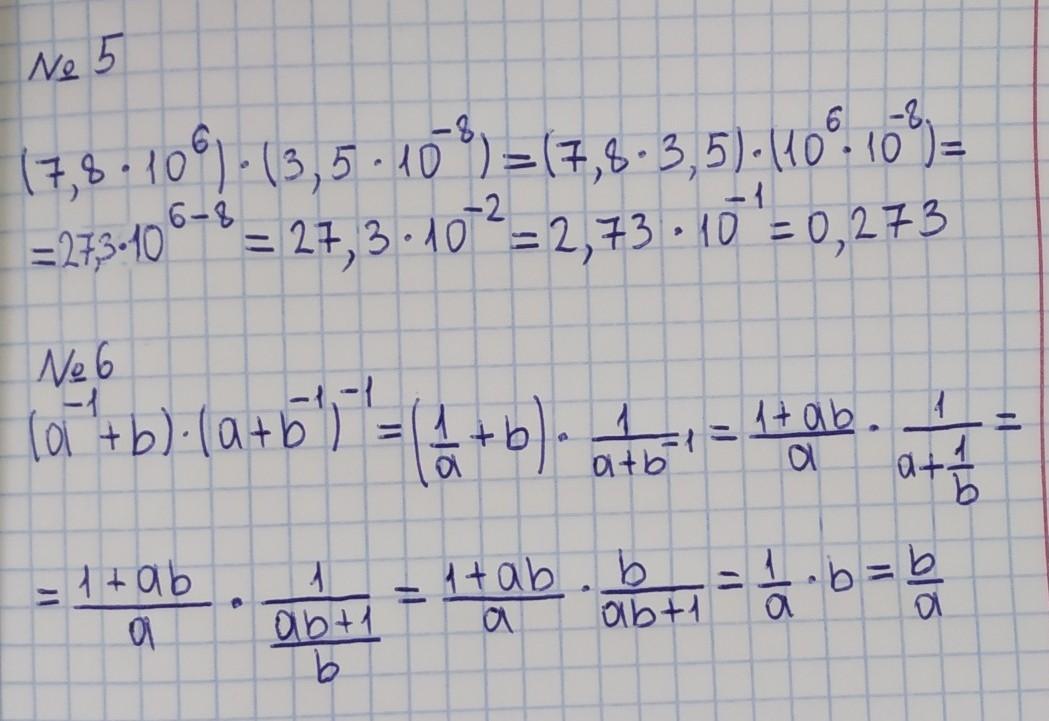 № 5
(7,8 · 10⁶) · (3,5 · 10⁻⁸) = (7,8 · 3,5) · (10⁶ · 10⁻⁸) =
= 27,3 · 10⁶⁻⁸ = 27,3 · 10⁻² = 2,73 · 10⁻¹ = 0,273
№ 6
(a⁻¹ + b) · (a + b⁻¹)⁻¹ = (1/a + b) · 1/(a + b⁻¹) = (1 + ab)/a · 1/(a + 1/b) =
= (1 + ab)/a · 1/((ab + 1)/b) = (1 + ab)/a · b/(ab + 1) = 1/a · b = b/a